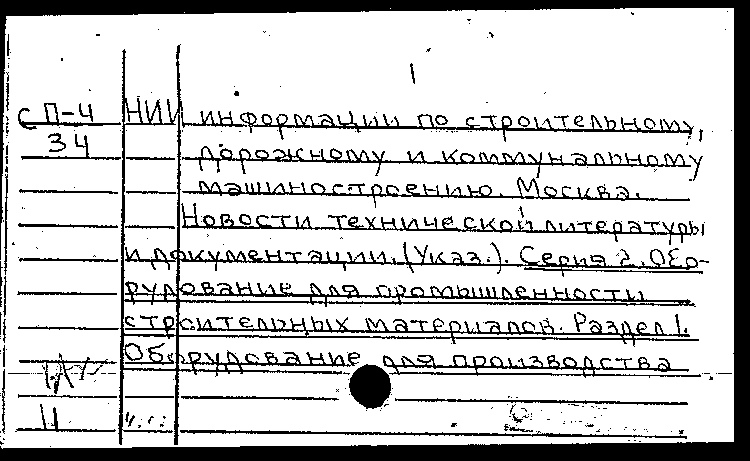 1
С П-4 НИИ информации по строительному,
34 дорожному и коммунальному
машиностроению. Москва.
Новости технической литературы
и документации. (Указ.). Серия 2. Обо-
рудование для промышленности
строительных материалов. Раздел 1.
Оборудование для производства
11